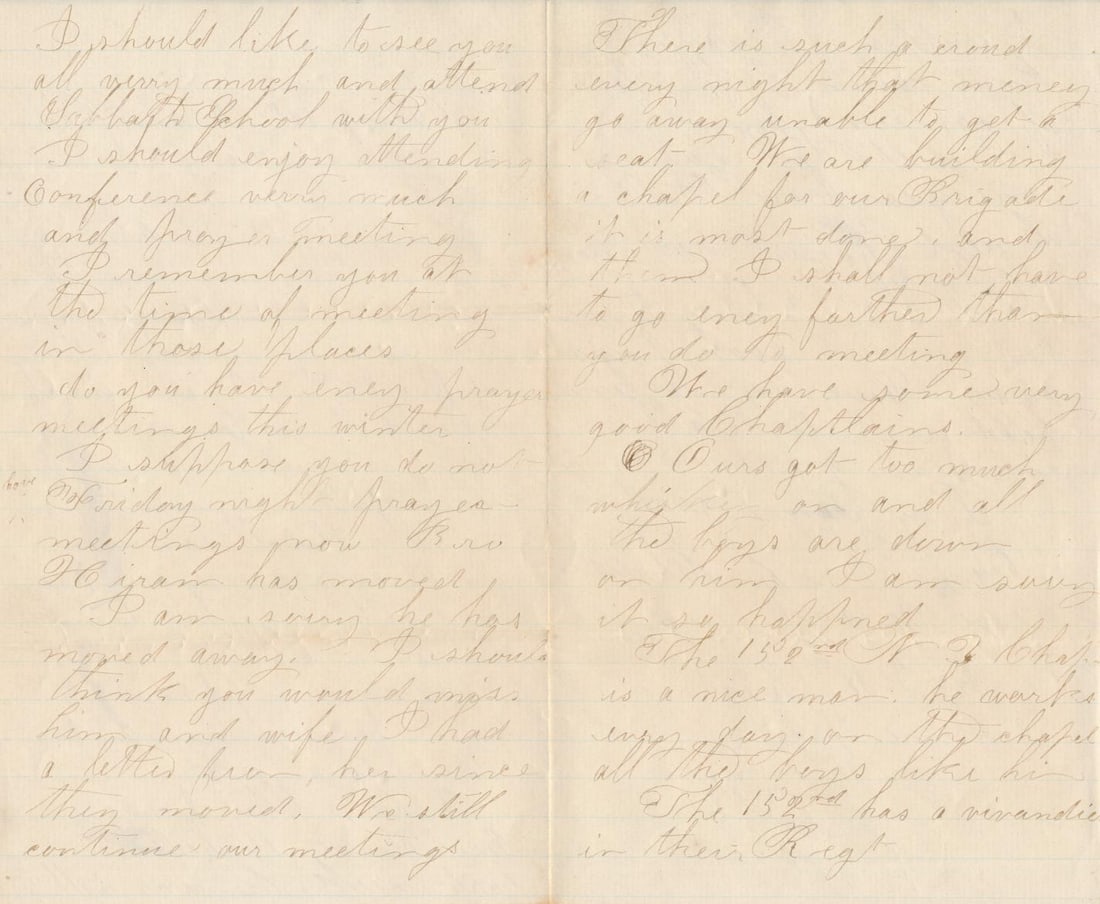 I should like to see you
all verry much and attend
Sabbath School with you
I should enjoy attending
Conference verry much
and prayer meeting
I remember you at
the time of meeting
in those places
do you have eney prayer
meetings this winter
I suppose you do not
have Friday night prayer
meetings now Bro
Hiram has moved
I am sorry he has
moved away. I should
think you would miss
him and wife. I had
a letter from her since
they moved. We still
continue our meetings
There is such a croud
every night that meney
go away unable to get a
seat. We are building
a chapel for our Brigade
it is most done, and
then I shall not have
to go eney farther than
you do to meeting
We have some very
good Chaptlains.
Ours got too much
whiskey on and all
the boys are down
on him I am sorry
it so happned
The 152nd N Y Chap-
is a nice man. he works
every day on the chapel
all the boys like him
The 152nd has a vivandie
in their Regt